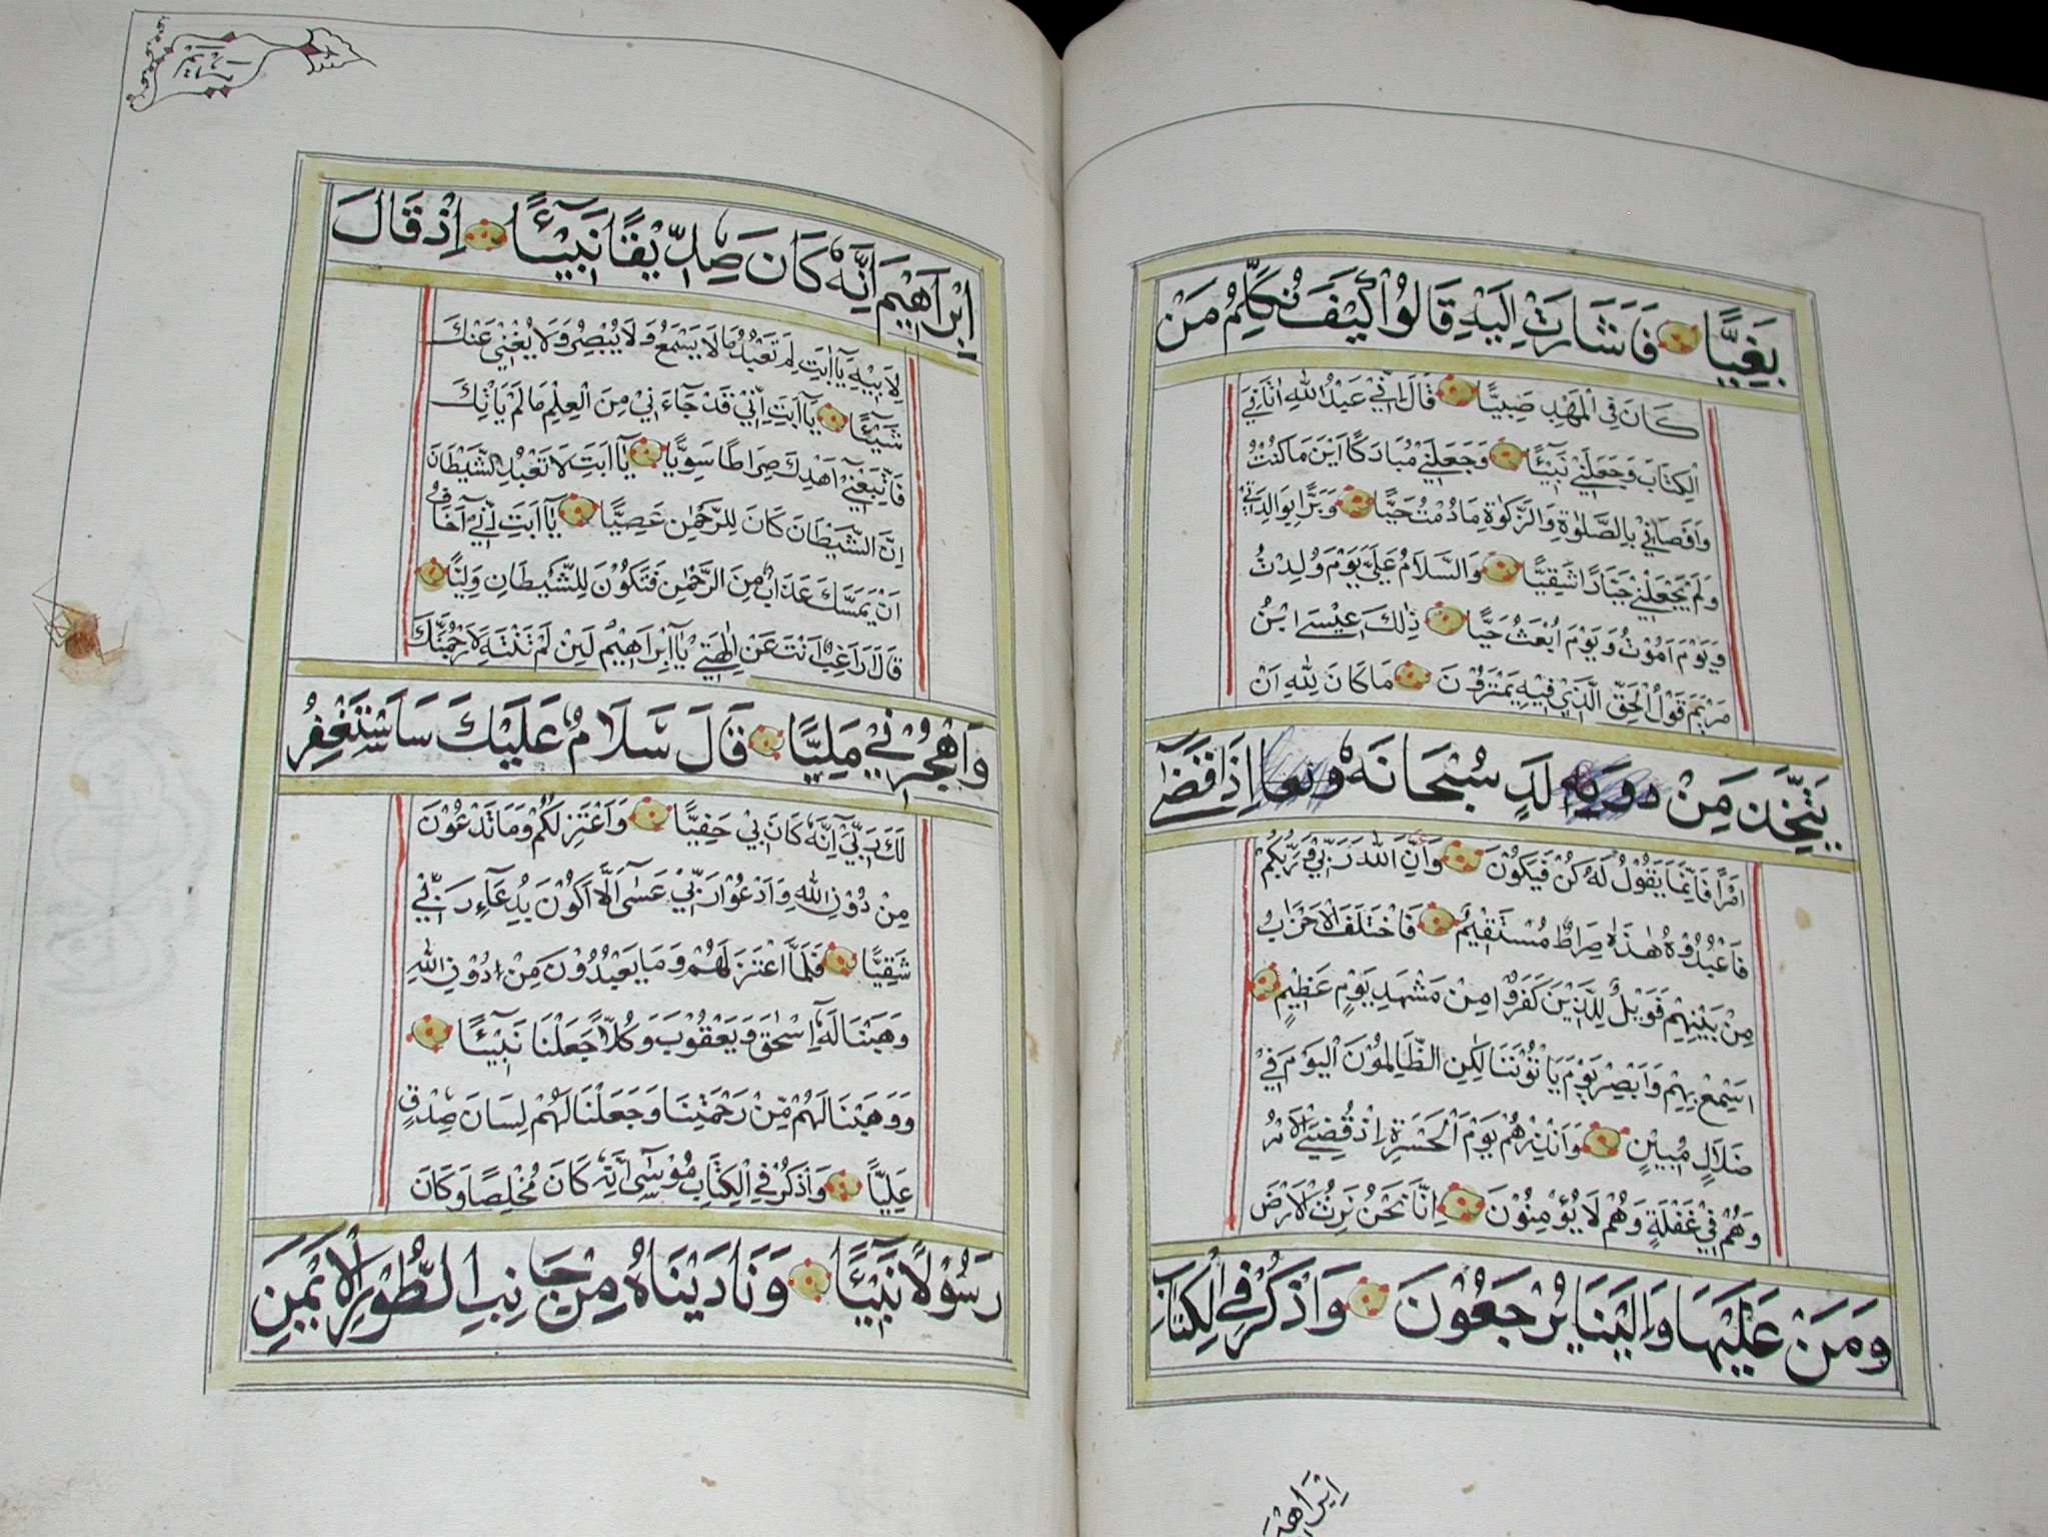 بَغِيًّا فَاَشَارَتْ اِلَيْهِ قَالُوْا كَيْفَ نُكَلِّمُ مَنْ
كَانَ فِي الْمَهْدِ صَبِيًّا قَالَ اِنِّيْ عَبْدُ اللهِ اٰتَانِيَ
الْكِتَابَ وَجَعَلَنِيْ نَبِيْئًا وَجَعَلَنِيْ مُبَارَكًا اَيْنَ مَا كُنْتُ
وَاَوْصَانِيْ بِالصَّلٰوةِ وَالزَّكٰوةِ مَا دُمْتُ حَيًّا وَبَرًّا بِوَالِدَتِيْ
وَلَمْ يَجْعَلْنِيْ جَبَّارًا شَقِيًّا وَالسَّلَامُ عَلَيَّ يَوْمَ وُلِدْتُ
وَيَوْمَ اَمُوْتُ وَيَوْمَ اُبْعَثُ حَيًّا ذٰلِكَ عِيْسَى ابْنُ
مَرْيَمَ قَوْلُ الْحَقِّ الَّذِيْ فِيْهِ يَمْتَرُوْنَ مَا كَانَ لِلّٰهِ اَنْ
يَتَّخِذَ مِنْ وَلَدٍ سُبْحَانَهٗ اِذَا قَضٰى
اَمْرًا فَاِنَّمَا يَقُوْلُ لَهٗ كُنْ فَيَكُوْنَ وَاَنَّ اللهَ رَبِّيْ وَرَبُّكُمْ
فَاعْبُدُوْهُ هٰذَا صِرَاطٌ مُسْتَقِيْمٌ فَاخْتَلَفَ الْاَحْزَابُ
مِنْ بَيْنِهِمْ فَوَيْلٌ لِلَّذِيْنَ كَفَرُوْا مِنْ مَشْهَدِ يَوْمٍ عَظِيْمٍ
اَسْمِعْ بِهِمْ وَاَبْصِرْ يَوْمَ يَاْتُوْنَنَا لٰكِنِ الظَّالِمُوْنَ الْيَوْمَ فِيْ
ضَلَالٍ مُبِيْنٍ وَاَنْذِرْهُمْ يَوْمَ الْحَسْرَةِ اِذْ قُضِيَ الْاَمْرُ
وَهُمْ فِيْ غَفْلَةٍ وَهُمْ لَا يُؤْمِنُوْنَ اِنَّا نَحْنُ نَرِثُ الْاَرْضَ
وَمَنْ عَلَيْهَا وَاِلَيْنَا يُرْجَعُوْنَ وَاذْكُرْ فِي الْكِتَابِ
اِبْرَاهِيْمَ
اِبْرَاهِيْمَ اِنَّهٗ كَانَ صِدِّيْقًا نَبِيْئًا اِذْ قَالَ
لِاَبِيْهِ يَآ اَبَتِ لِمَ تَعْبُدُ مَا لَا يَسْمَعُ وَلَا يُبْصِرُ وَلَا يُغْنِيْ عَنْكَ
شَيْئًا يَآ اَبَتِ اِنِّيْ قَدْ جَآءَنِيْ مِنَ الْعِلْمِ مَا لَمْ يَاْتِكَ
فَاتَّبِعْنِيْ اَهْدِكَ صِرَاطًا سَوِيًّا يَآ اَبَتِ لَا تَعْبُدِ الشَّيْطَانَ
اِنَّ الشَّيْطَانَ كَانَ لِلرَّحْمٰنِ عَصِيًّا يَآ اَبَتِ اِنِّيْ اَخَافُ
اَنْ يَمَسَّكَ عَذَابٌ مِنَ الرَّحْمٰنِ فَتَكُوْنَ لِلشَّيْطَانِ وَلِيًّا
قَالَ رَاغِبٌ اَنْتَ عَنْ اٰلِهَتِيْ يَآ اِبْرَاهِيْمُ لَئِنْ لَمْ تَنْتَهِ لَاَرْجُمَنَّكَ
وَاهْجُرْنِيْ مَلِيًّا قَالَ سَلَامٌ عَلَيْكَ سَاَسْتَغْفِرُ
لَكَ رَبِّيْ اِنَّهٗ كَانَ بِيْ حَفِيًّا وَاَعْتَزِلُكُمْ وَمَا تَدْعُوْنَ
مِنْ دُوْنِ اللهِ وَاَدْعُوْا رَبِّيْ عَسٰى اَلَّا اَكُوْنَ بِدُعَآءِ رَبِّيْ
شَقِيًّا فَلَمَّا اعْتَزَلَهُمْ وَمَا يَعْبُدُوْنَ مِنْ دُوْنِ اللهِ
وَهَبْنَا لَهٗ اِسْحٰقَ وَيَعْقُوْبَ وَكُلًّا جَعَلْنَا نَبِيْئًا
وَوَهَبْنَا لَهُمْ مِنْ رَحْمَتِنَا وَجَعَلْنَا لَهُمْ لِسَانَ صِدْقٍ
عَلِيًّا وَاذْكُرْ فِي الْكِتَابِ مُوْسٰى اِنَّهٗ كَانَ مُخْلِصًا وَكَانَ
رَسُوْلًا نَبِيْئًا وَنَادَيْنَاهُ مِنْ جَانِبِ الطُّوْرِ الْاَيْمَنِ